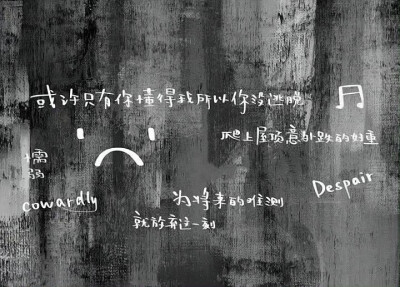 或许只有你懂得我所以你没逃脱
爬上屋顶意外跌的好重
懦弱
Despair
cowardly
为将来的难测
就放弃这一刻